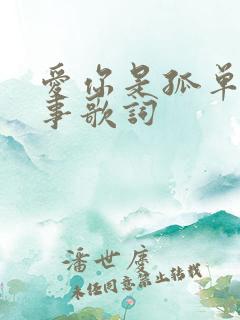 愛你是孤單
事歌詞
潘世度
未经同意禁止转载